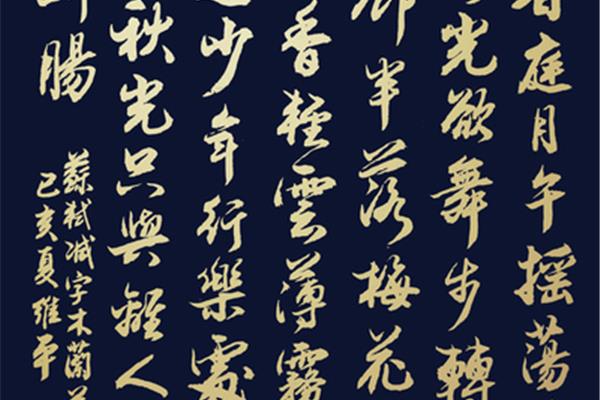 春庭月午摇荡
光欲舞步轉
廊半落梅花
香輕雲薄霧
是少年行樂處
秋光只與離人
斷腸
蘇軾减字木蘭花
己亥夏維平